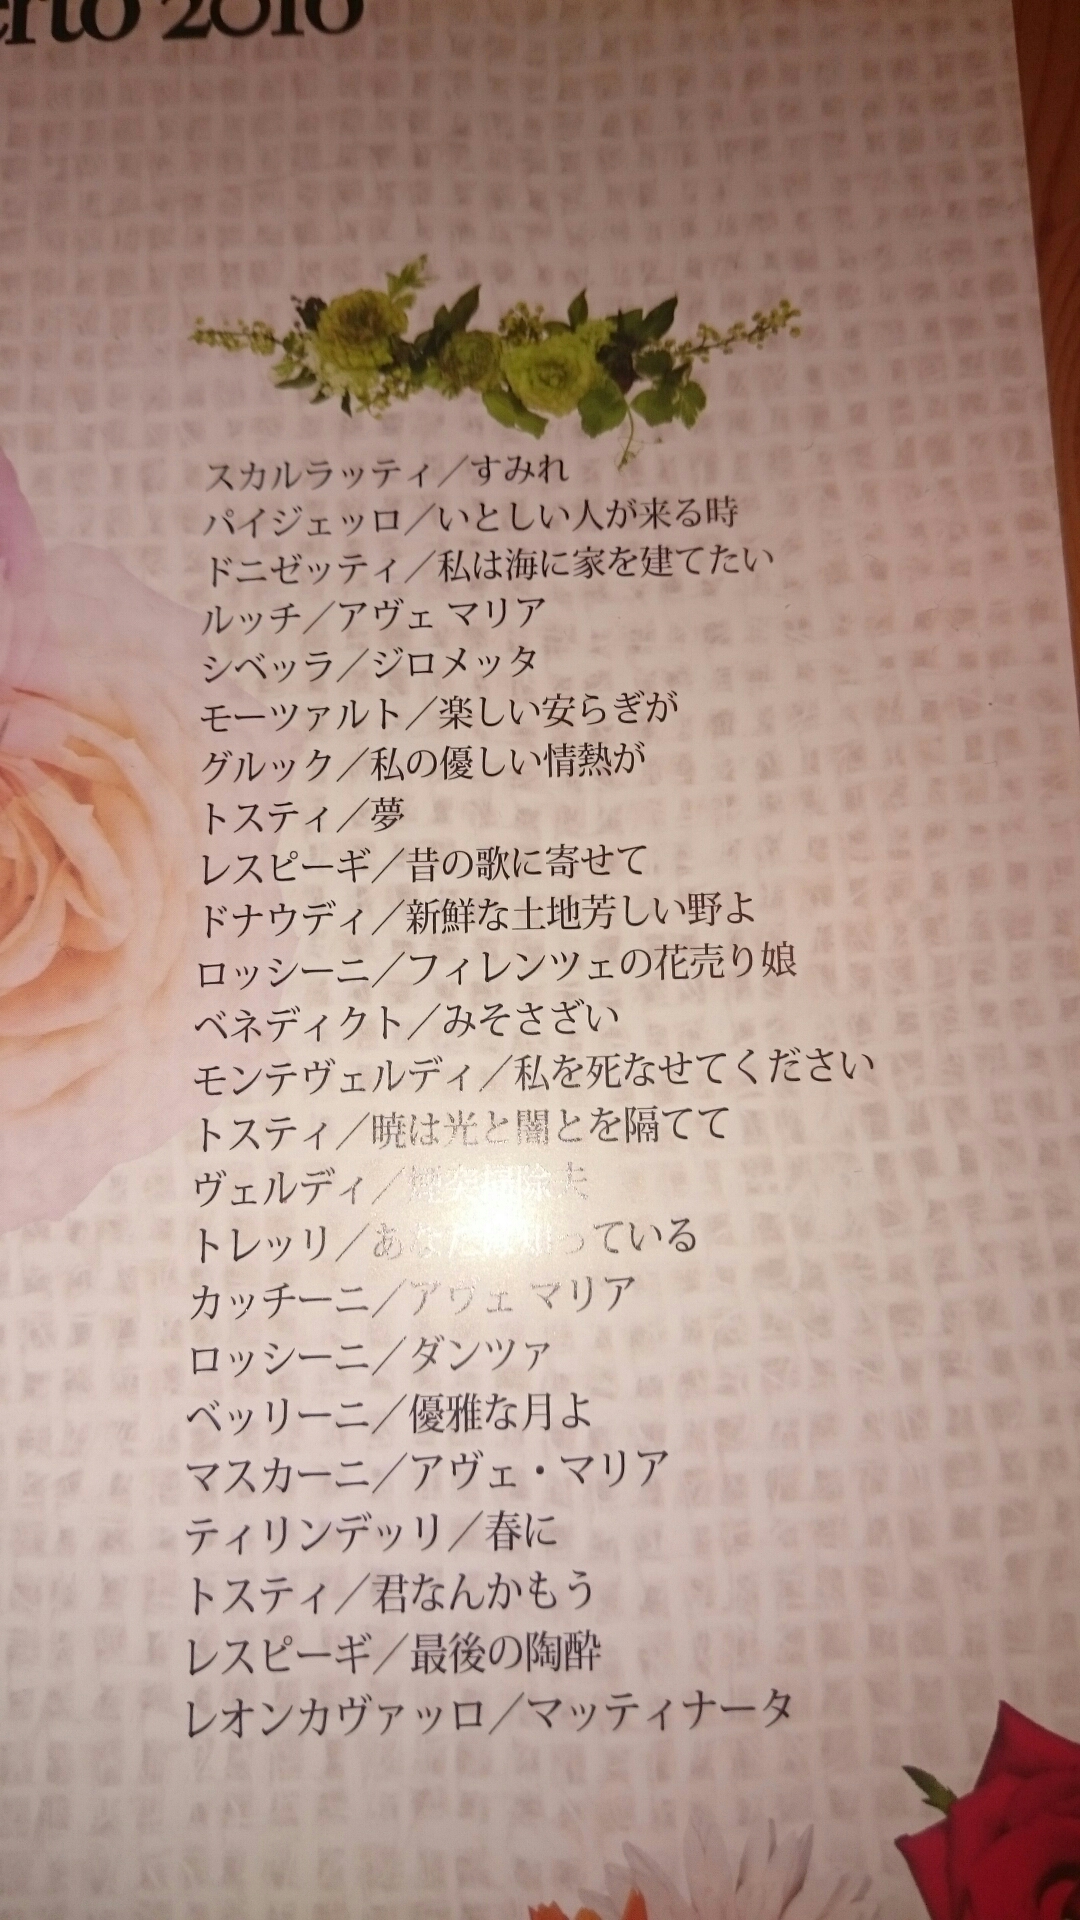 erto 2016
スカルラッティ／すみれ
パイジェッロ／いとしい人が来る時
ドニゼッティ／私は海に家を建てたい
ルッチ／アヴェ マリア
シベッラ／ジロメッタ
モーツァルト／楽しい安らぎが
グルック／私の優しい情熱が
トスティ／夢
レスピーギ／昔の歌に寄せて
ドナウディ／新鮮な土地芳しい野よ
ロッシーニ／フィレンツェの花売り娘
ベネディクト／みそさざい
モンテヴェルディ／私を死なせてください
トスティ／暁は光と闇とを隔てて
ヴェルディ／煙突掃除夫
トレッリ／あなたは知っている
カッチーニ／アヴェ マリア
ロッシーニ／ダンツァ
ベッリーニ／優雅な月よ
マスカーニ／アヴェ・マリア
ティリンデッリ／春に
トスティ／君なんかもう
レスピーギ／最後の陶酔
レオンカヴァッロ／マッティナータ